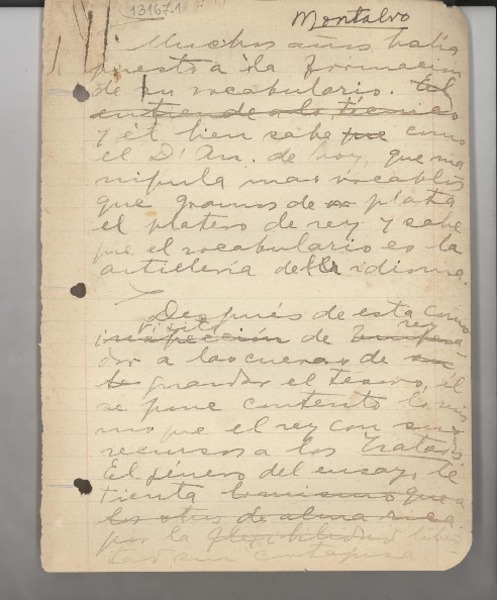 131671
Montalvo
Muchos años había
puesto a la formación
de su vocabulario. El
entiende a lo técnico
y él bien sabe que como
el D'An. de hoy, que ma
nipula mas vocablos
que gramos de plata
el platero de rey y sabe
que el vocabulario es la
artillería del idioma.
Después de esta como
visita rey
inspección de
dor a las cuevas de su
guardar el tesoro, él
se pone contento lo mis
mo que el rey con sus
recursos a los Tratados
El género del ensayo, le
tienta que a
los otros de alma rica
por la flexibilidad liber
tad sin cortapisa